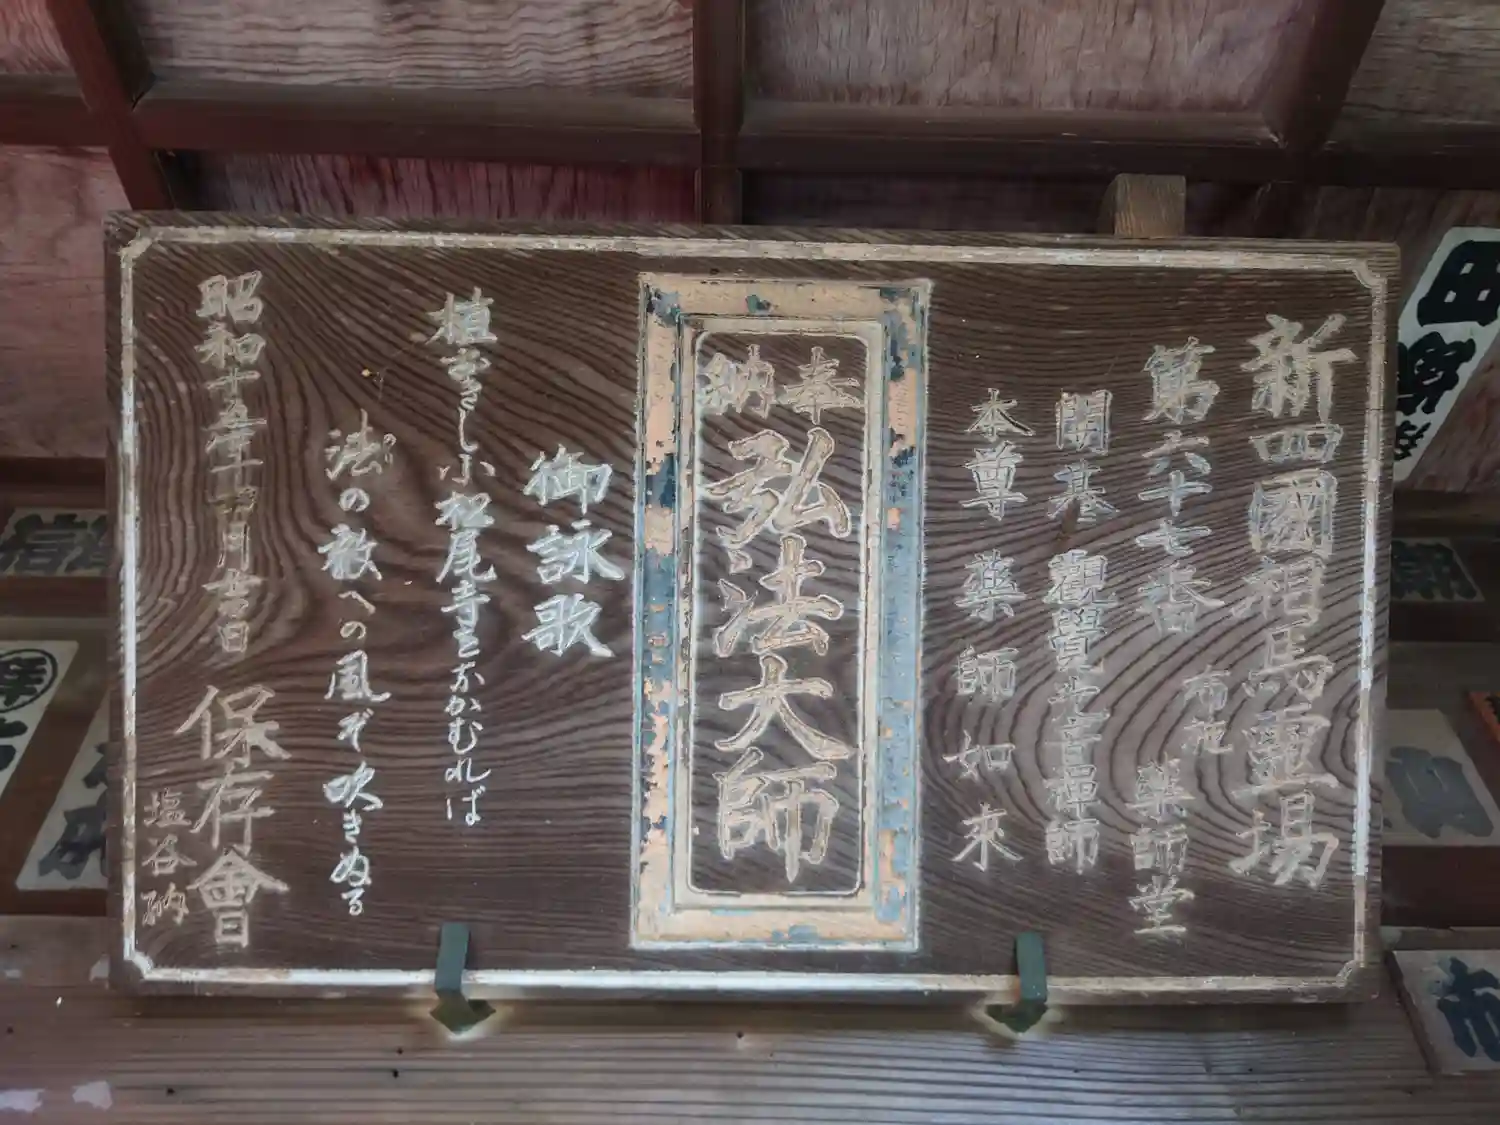 新四國相馬霊場
第六十七番 布施 薬師堂
開基 觀覺光音禅師
本尊 薬師如来
奉納
弘法大師
御詠歌
植おきし小松尾寺をながむれば
法の教への風ぞ吹きぬる
昭和十五年十一月吉日
保存會
塩谷納